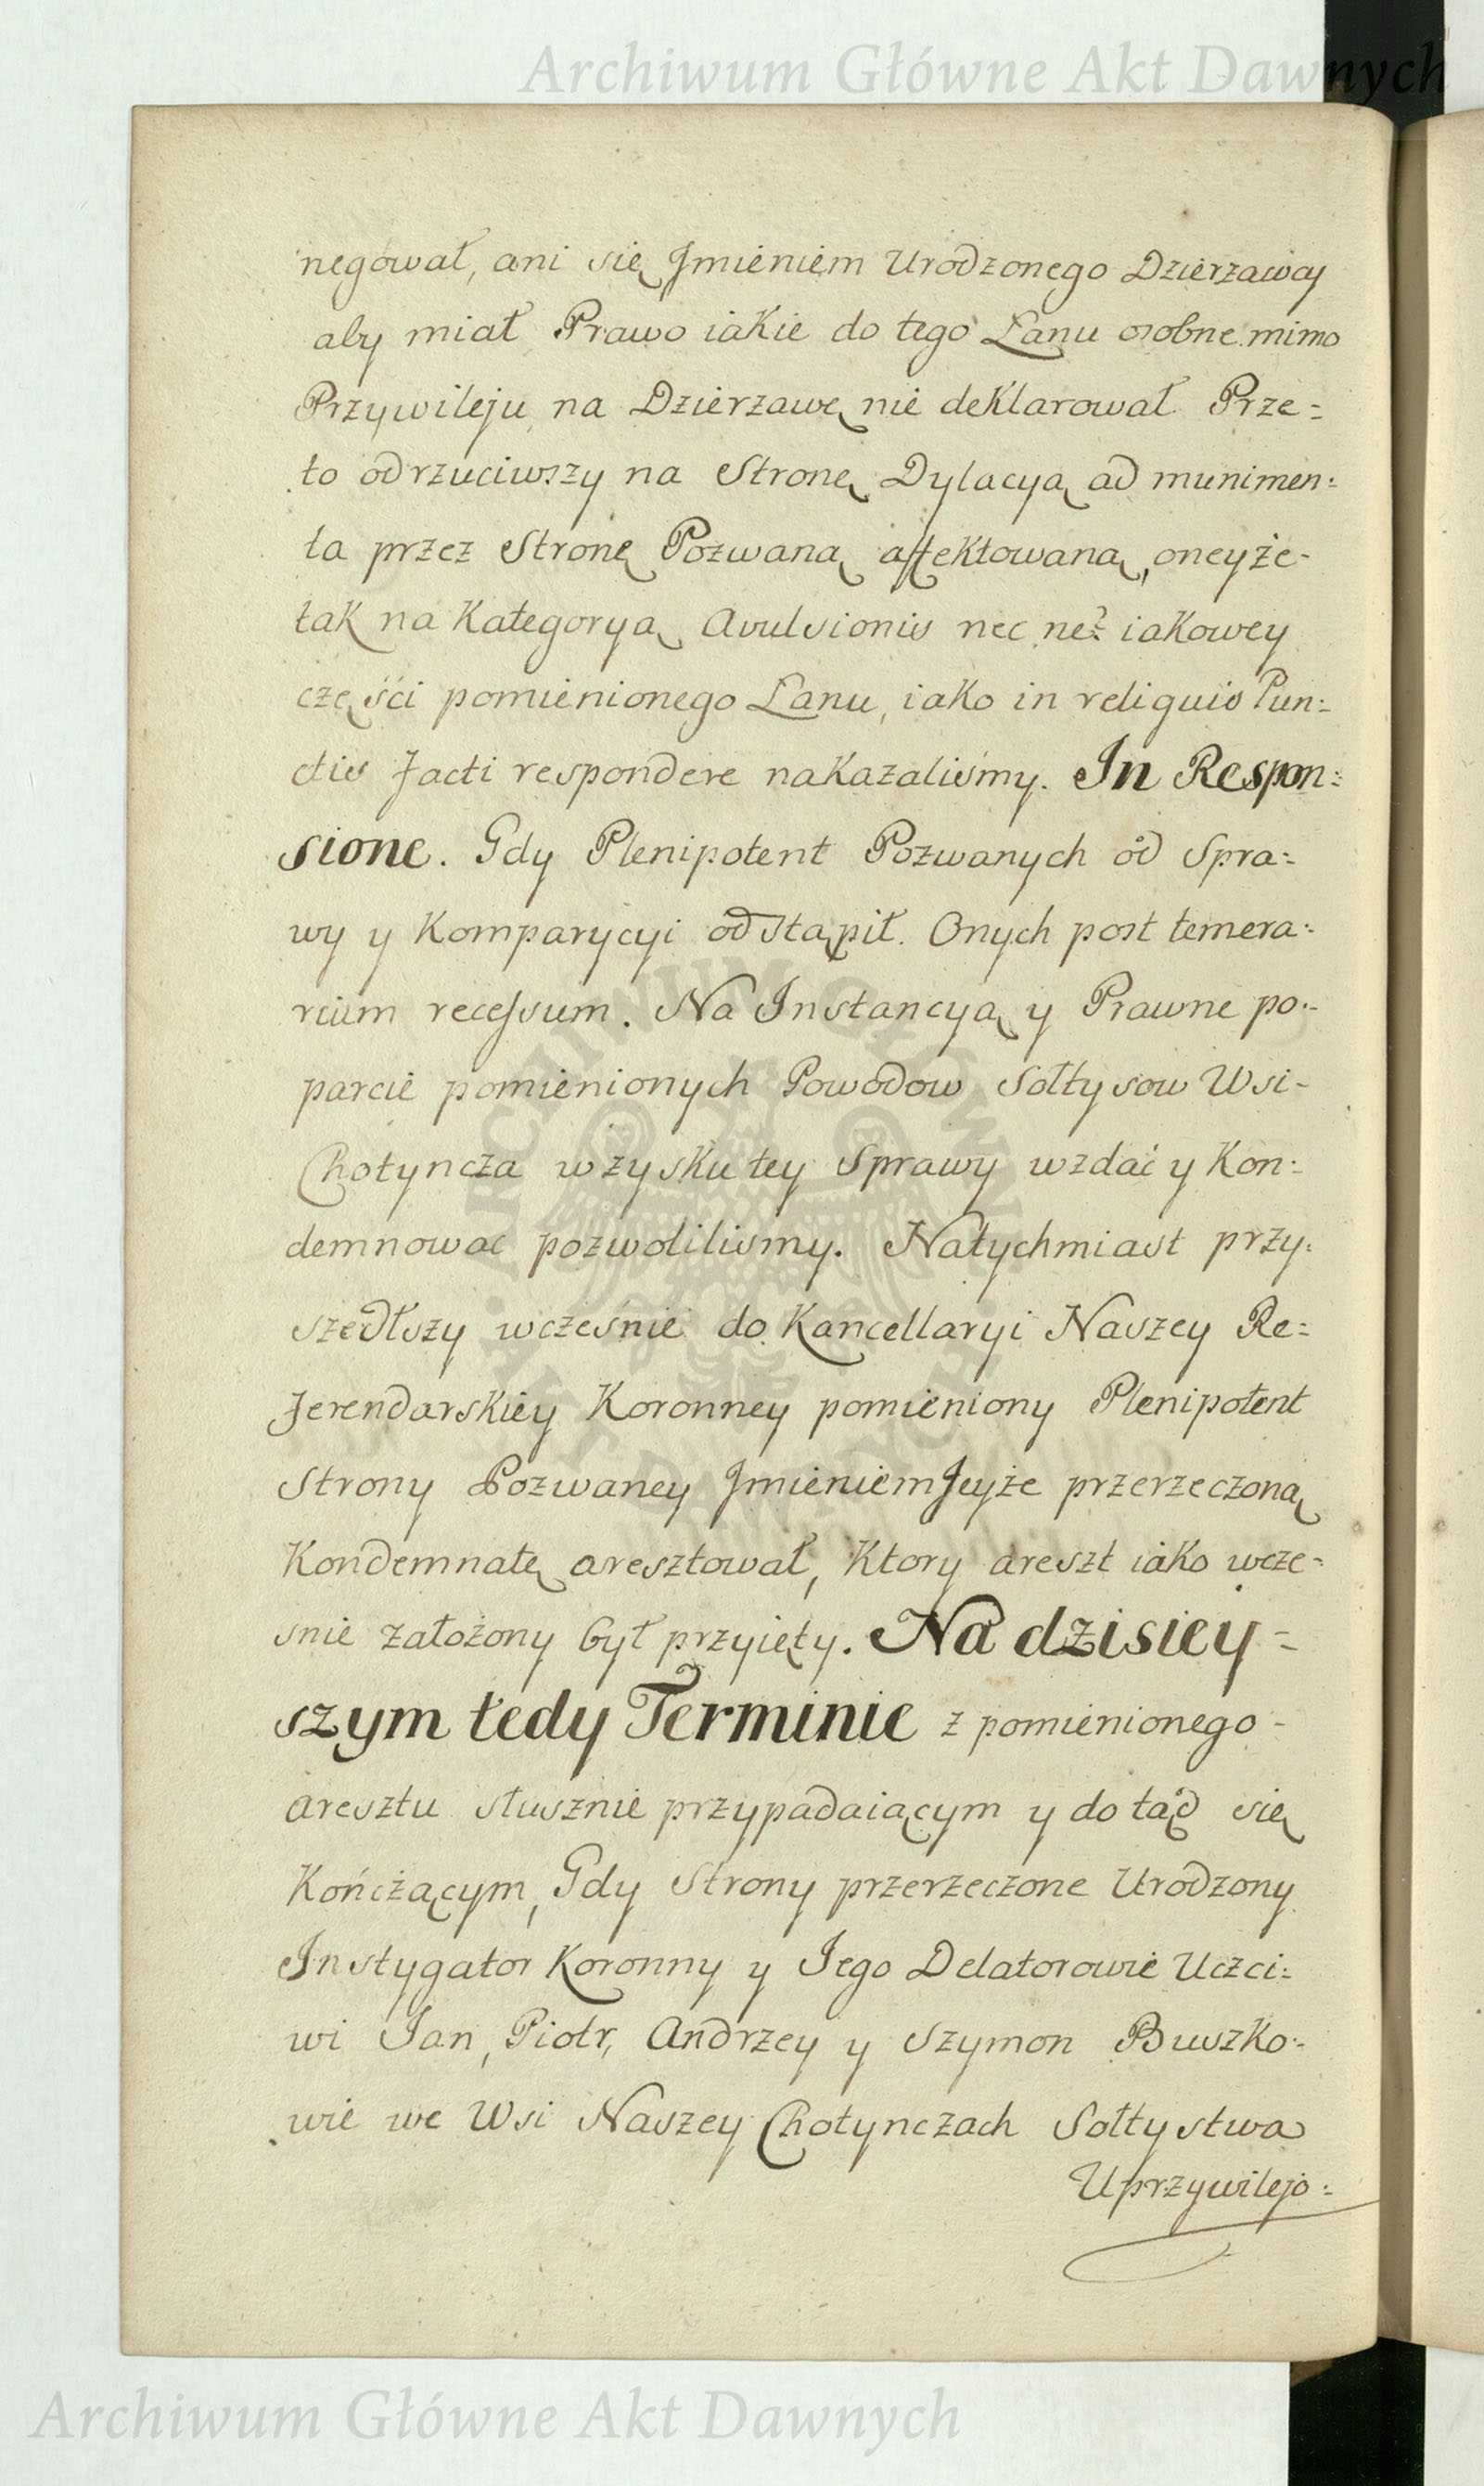 Archiwum Główne Akt Dawnych
negował, ani się Imieniem Urodzonego Dzierzawcy
aby miał Prawo iakie do tego Łanu osobne mimo
Przywileju na Dzierzawę nie deklarował Prze=
to odrzuciwszy na Stronę Dylacyą ad munimen=
ta przez Stronę Pozwaną affektowaną, oneyże-
tak na Kategoryą Avulsionis nec ne? iakowey
części pomienionego Łanu, iako in reliquis Pun=
ctis facti respondere nakazaliśmy. In Respon=
sione. Gdy Plenipotent Pozwanych od Spra=
wy y Komparycyi odstąpił. Onych post temera=
rium recessum. Na Instancyą y Prawne po=
parcie pomienionych Powodow Sołtysow Wsi-
Chotyncza w zysku tey Sprawy wzdać y Kon=
demnować pozwolilismy. Natychmiast przy=
szedłszy wcześnie do Kancellaryi Naszey Re=
ferendarskiey Koronney pomieniony Plenipotent
Strony Pozwaney Imieniem Jeyże przerzeczoną
Kondemnatę aresztował, Ktory areszt iako wcze=
snie założony był przyięty. Na dzisiey=
szym tedy Terminie z pomienionego-
aresztu słusznie przypadaiącym y do tąd się
Kończącym, Gdy Strony przerzeczone Urodzony
Instygator Koronny y Iego Delatorowie Uczci=
wi Ian, Piotr, Andrzey y Szymon Buszko=
wie we Wsi Naszey Chotynczach Sołtystwa
Uprzywilejo=
Archiwum Główne Akt Dawnych